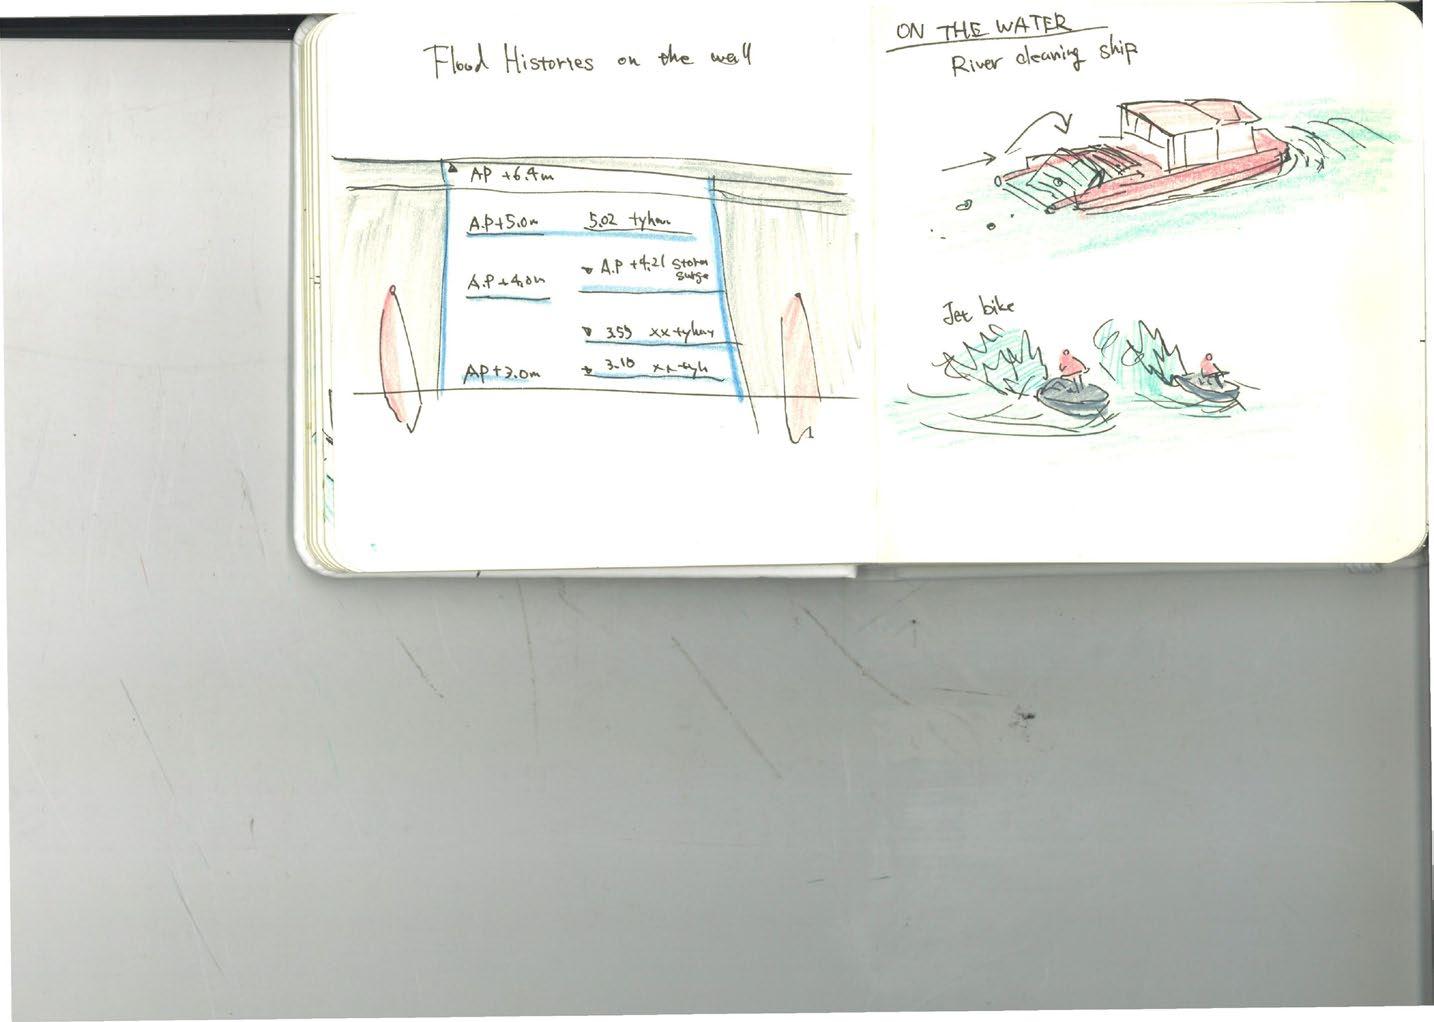 Flood Histories on the wall
AP +6.4m
A.P+5.0m 5.02 typhoon
A.P+4.0m A.P +4.21 storm
surge
3.59 xx typhoon
AP+3.0m 3.10 xx typh
ON THE WATER
River cleaning ship
Jet bike